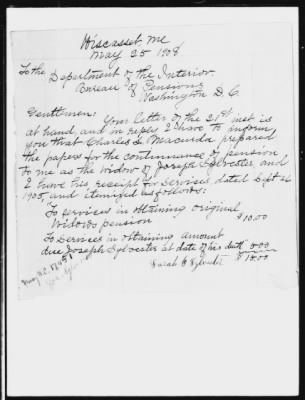 Wiscasset Me
May 25 1908
To the Department of the Interior.
Bureau of Pensions
Washington D.C.
Gentlemen: Your letter of the 21st inst is
at hand, and in reply I have to inform
you that Charles L. Macurda prepared
the papers for the continuance of pension
to me as the widow of Joseph Sylvester, and
I have his receipt for services dated Sept 21
1905, and itemized as follows:
To services in obtaining original
Widows pension $10.00
To Services in obtaining amount
due Joseph Sylvester at date of his death
Sarah E Sylvester